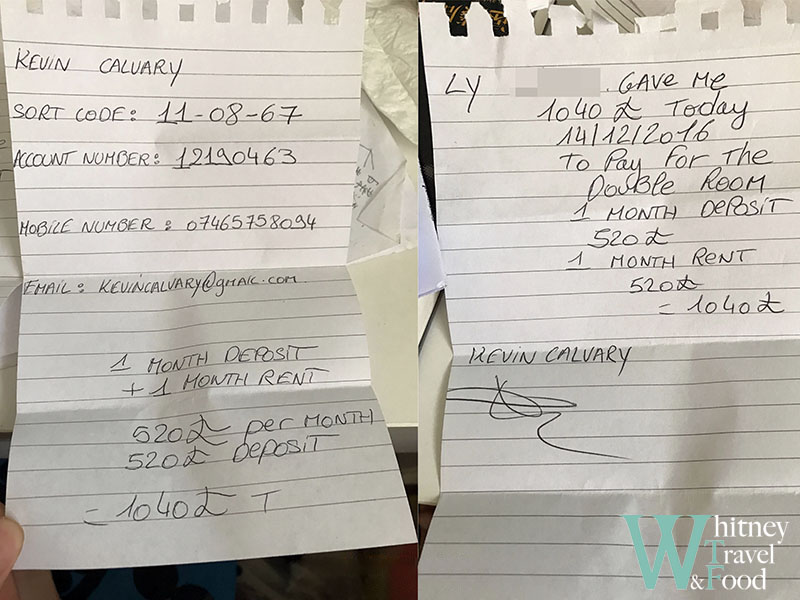 KEVIN CALVARY
SORT CODE: 11-08-67
ACCOUNT NUMBER: 12190463
MOBILE NUMBER: 07465758094
EMAIL: KEVINCALVARY@gmail.com
1 MONTH DEPOSIT
+ 1 MONTH RENT
520£ per MONTH
520£ DEPOSIT
= 1040£ T
LY . GAVE ME
1040£ Today
14/12/2016
To Pay FOR THE
DOUBLE ROOM
1 MONTH DEPOSIT
520£
1 MONTH RENT
520£
= 1040£
KEVIN CALVARY
Whitney
Travel
& Food